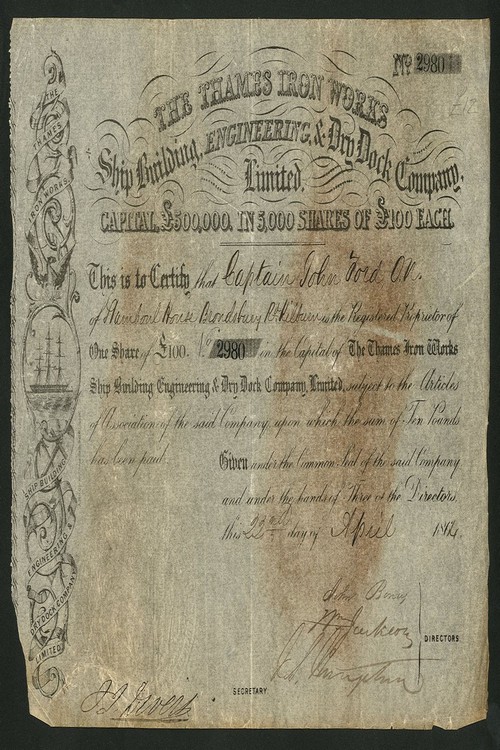 No 2980
£12
THE THAMES IRON WORKS
Ship Building, ENGINEERING, & Dry Dock Company,
Limited.
CAPITAL, £500,000. IN 5,000 SHARES OF £100 EACH.
This is to Certify that Captain John Ford
of House Brondesbury Rd Kilburn is the Registered Proprietor of
One Share of £100. No 2980 in the Capital of The Thames Iron Works
Ship Building Engineering & Dry Dock Company, Limited, subject to the Articles
of Association of the said Company upon which the sum of Ten Pounds
has been paid.
Given under the Common Seal of the said Company
and under the hands of Three of the Directors
this 22nd day of April 1864.
John
DIRECTORS
SECRETARY
THE THAMES
IRON WORKS
SHIP BUILDING
ENGINEERING &
DRY DOCK COMPANY
LIMITED